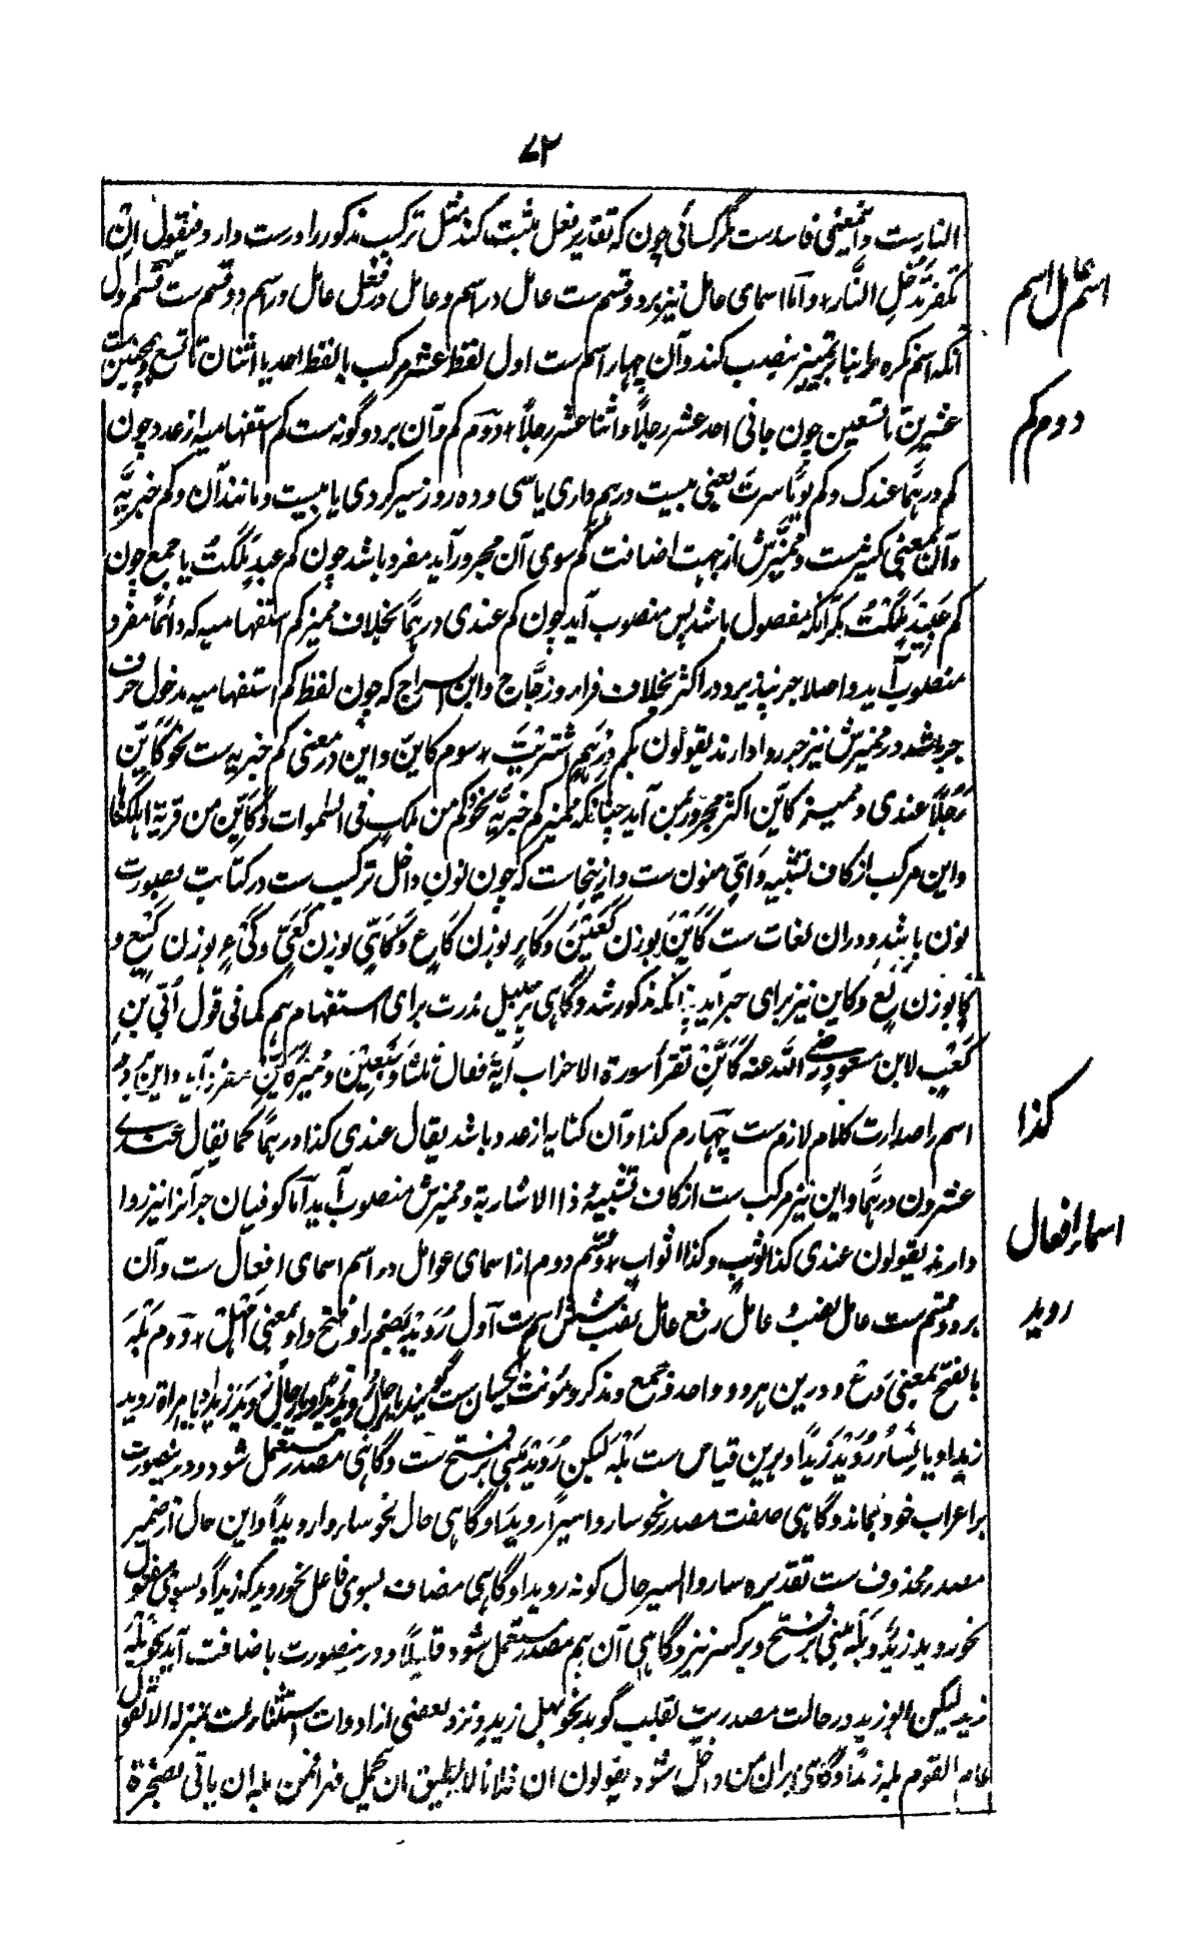 ۷۲
النارست و اینمعنی فاسدست مگر کسائی چون که تقدیر فعل مثبت کند مثل ترکیب مذکور را درست دارد فیقول ان
تکفر تدخل النار، و اما اسمای عامل نیز بر دو قسم ست عامل در اسم و عامل در فعل عامل در اسم دو قسم ست قسم اول
آنکه اسم نکره را بنا بر تمییز نصب کند و آن چهار اسم ست اول لفظ عشر مرکب با لفظ احد یا اثنان تا تسع و همچنین
عشرین تا تسعین چون جانی احد عشر رجلاً و اثنا عشر رجلاً، دوم کم و آن بر دو گونه ست کم استفهامیه از عدد چون
کم درهماً عندک و کم یوماً سرت یعنی بیست درهم داری یا سی و ده روز سیر کردی یا بیست و مانند آن و کم خبریه
و آن بمعنی کثیرست و ممیزش از جهت اضافت کم سوی آن مجرور آید مفرد باشد چون کم عبد ملکت یا جمع چون
کم عبید ملکت مگر آنکه مفصول باشد پس منصوب آید چون کم عندی درهماً بخلاف ممیز کم استفهامیه که دائماً مفرد
منصوب آید و اصلا جر نپذیرد در اکثر بخلاف فرا و زجاج و ابن السراج که چون لفظ کم استفهامیه مدخول حرف
جر باشد در ممیزش نیز جر روا دارند یقولون بکم درهم اشتریت، سوم کاین و این در معنی کم خبریه ست نحو کاین
رجلاً عندی و ممیز کاین اکثر مجرور بمن آید چنانکه ممیز کم خبریه نحو وکم من ملک فی السموات وکاین من قریة اهلکناها
و این مرکب از کاف تشبیه و ای منون ست و ازینجاست که چون نون داخل ترکیب ست در کتابت بصورت
نون باشد و دران لغات ست کاین بوزن کعین و کاءٍ بوزن کاعٍ و کایٍ بوزن کعیٍ و کیءٍ بوزن کیعٍ و
کإ بوزن کع و کاین نیز برای خبر آید چنانکه مذکور شد و گاهی بر سبیل ندرت برای استفهام هم کما فی قول ابی بن
کعب لابن مسعود رضی الله عنه کاین تقرأ سورة الاحزاب آیة فقال ثلثا و سبعین و ممیز کاین مفرد آید و این هر دو
اسم را صدارت کلام لازم ست چهارم کذا و آن کنایه از عدد باشد یقال عندی کذا درهماً کما یقال عندی
عشرون درهماً و این نیز مرکب ست از کاف تشبیه و ذا الاشاریة و ممیزش منصوب آید اما کوفیان جر آنرا نیز روا
دارند یقولون عندی کذا ثوبٍ و کذا اثوابٍ، قسم دوم از اسمای عوامل در اسم اسمای افعال ست و آن
بر دو قسم ست عامل نصب و عامل رفع عامل نصب شش اسم ست اول روید بضم را و فتح واو بمعنی امهل، دوم بله
بالفتح بمعنی دع و درین هر دو واحد و جمع و مذکر و مونث یکسان ست گویند یا رجل روید زیداً و یا رجال روید زیداً و یا امرأة روید
زیداً و یا نساء روید زیداً و برین قیاس ست بله لیکن روید مبنی بر فتح ست و گاهی مصدر مستعمل شود و درینصورت
بر اعراب خود بماند و گاهی صفت مصدر نحو ساروا سیراً رویداً و گاهی حال نحو ساروا رویداً و این حال از ضمیر
مصدر محذوف ست تقدیره ساروا السیر حال کونه رویداً و گاهی مضاف بسوی فاعل نحو رویدک زیداً و بسوی مفعول
نحو روید زیدٍ و بله مبنی بر فتح و بر کسر نیز و گاهی آن هم مصدر مستعمل شود قلیلاً و درینصورت باضافت آید نحو بله
زیدٍ لیکن ابو زید در حالت مصدریت بقلب گوید نحو بهل زیدٍ و نزد بعضی از ادوات استثناست بمنزله الا تقول
القوم بله زیداً و گاهی بران من داخل شود یقولون ان فلانا لا یطیق ان یحمل فهراً فمن بله ان یاتی بصخرة
اسم عامل در اسم
دوم کم
کذا
اسماء افعال
روید